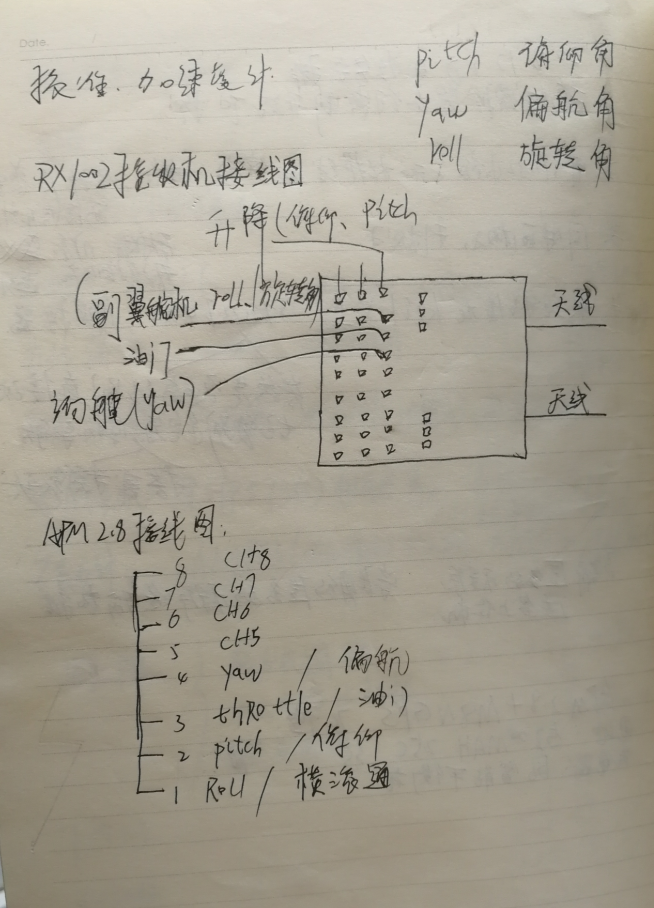 Date.
校准.加速度计
pitch 俯仰角
yaw 偏航角
roll 旋转角
RX1002接收机接线图
升降(俯仰、pitch
(副翼舵机 roll、旋转角)
油门
方向舵(yaw)
天线
天线
APM 2.8 接线图.
8 CH8
7 CH7
6 CH6
5 CH5
4 yaw / 偏航
3 thRottle / 油门
2 pitch / 俯仰
1 Roll / 横滚